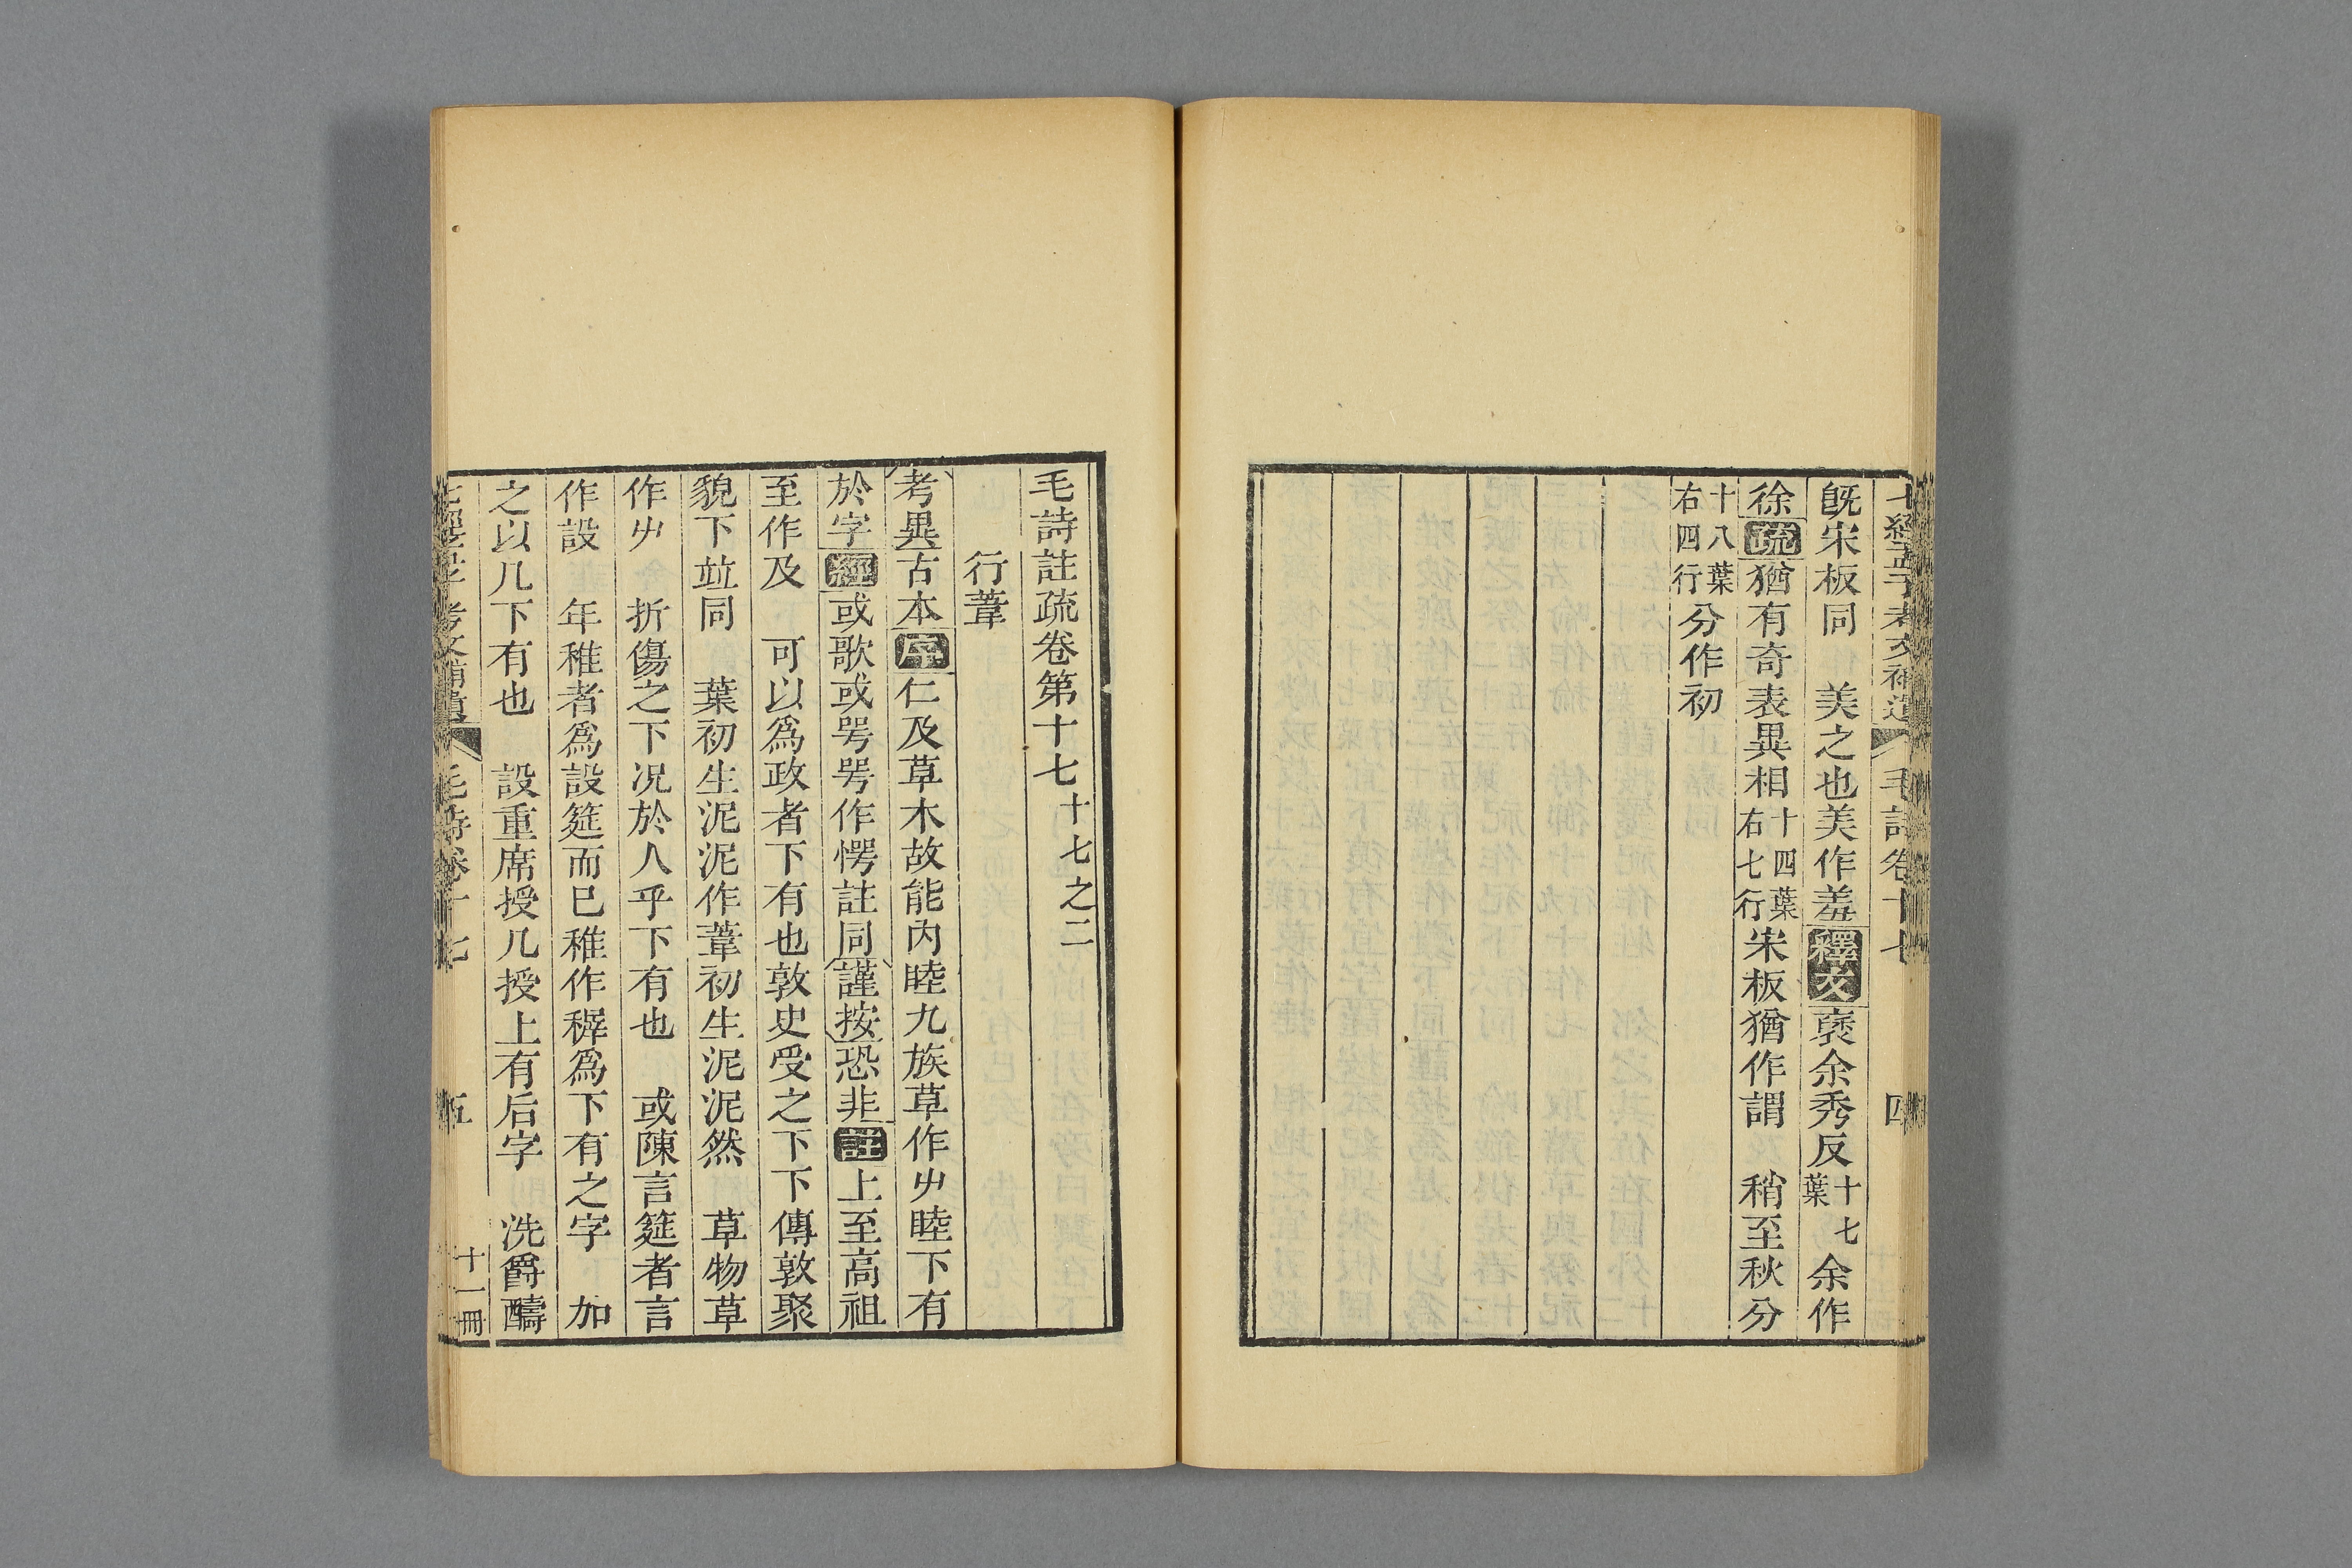 七經孟子考文補遺 毛詩卷十七 四
旣宋板同 美之也美作羞釋文褎余秀反十七葉余作
徐疏猶有奇表異相十四葉右七行宋板猶作謂 稍至秋分
十八葉右四行分作初
毛詩註疏卷第十七十七之二
行葦
考異古本序仁及草木故能內睦九族草作屮睦下有
於字經或歌或咢咢作愕註同謹按恐非註上至高祖
至作及 可以爲政者下有也敦史受之下下傳敦聚
貌下竝同 葉初生泥泥作葦初生泥泥然 草物草
作屮 折傷之下况於人乎下有也 或陳言筵者言
作設 年稚者爲設筵而巳稚作穉爲下有之字 加
之以几下有也 設重席授几授上有后字 洗爵醻
七經孟子考文補遺 毛詩卷十七 五 十一冊